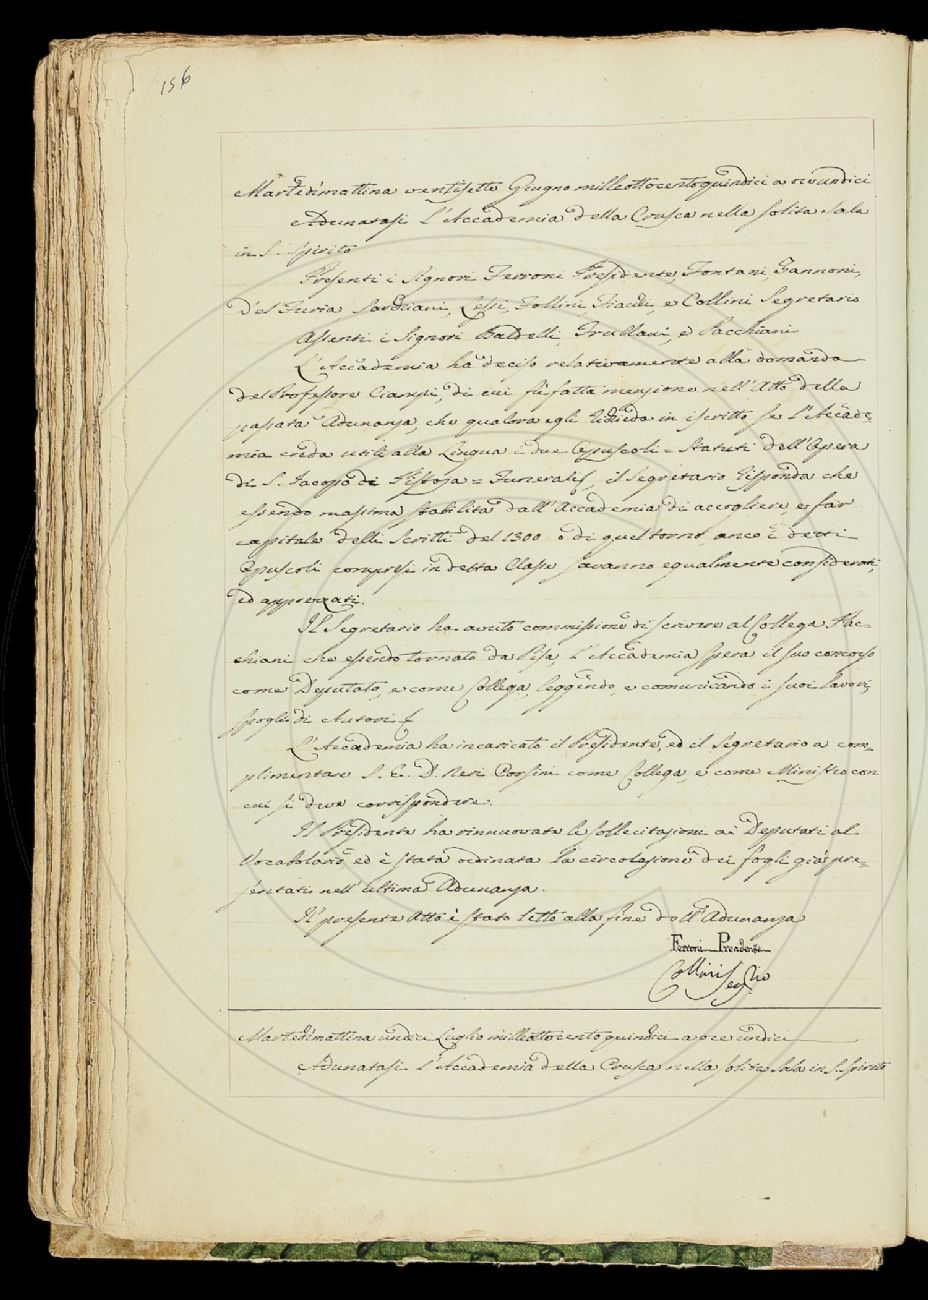 156
Martedì mattina ventisette Giugno milleottocentoquindici a ore undici
Adunatasi l'Accademia della Crusca nella solita Sala
in S. Spirito
Presenti i Signori Ferroni Presidente, Fontani, Zannoni,
Del Furia Sarchiani, Lessi, Follini, Fiacchi, e Collini Segretario
Assenti i Signori Baldelli, Grullani, e Pacchiani
L'Accademia ha deciso relativamente alla domanda
del Professore Ciampi, di cui fu fatta menzione nell'Atto della
passata Adunanza, che qualora egli richieda in iscritto se l'Accade-
mia creda utili alla Lingua i due Opuscoli = Statuti dell'Opera
di S. Jacopo di Pistoja = Funerali, il Segretario risponda che
essendo massima stabilita dall'Accademia di accogliere, e far
capitale delli Scritti del 1300 o di quel torno, anco i detti
Opuscoli compresi in detta Classe saranno egualmente considerati,
ed apprezzati.
Il Segretario ha avuto commissione di scrivere al Collega Pac-
chiani che essendo tornato da Pisa l'Accademia spera il suo concorso
come Deputato, e come Collega, leggendo, e comunicando i suoi lavori,
spogli di Autori
L'Accademia ha incaricato il Presidente, ed il Segretario a com-
plimentare S. E. D. Neri Corsini come Collega, e come Ministro con
cui si deve corrispondere.
Il Presidente ha rinnuovate le sollecitazioni ai Deputati al
Vocabolario ed è stata ordinata la circolazione dei fogli già pre-
sentati nell'ultima Adunanza.
Il presente Atto è stato letto alla fine dell'Adunanza
Ferroni Presidente
Collini Seg.rio
Martedì mattina undici Luglio milleottocentoquindici a ore undici
Adunatasi l'Accademia della Crusca nella solita Sala in S. Spirito